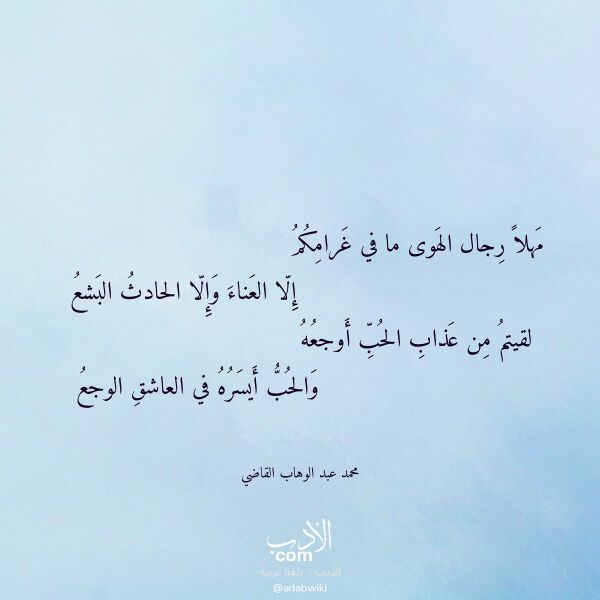 مَهلاً رِجال الهَوى ما في غَرامِكُمُ
إِلّا العَناءَ وَإِلّا الحادثُ البَشعُ
لقيتمُ مِن عَذابِ الحُبِّ أَوجعُهُ
وَالحُبُّ أَيسَرُهُ في العاشقِ الوجعُ
محمد عبد الوهاب القاضي
الأدب
com
الأدب .. بلغة عربية
@adabwiki